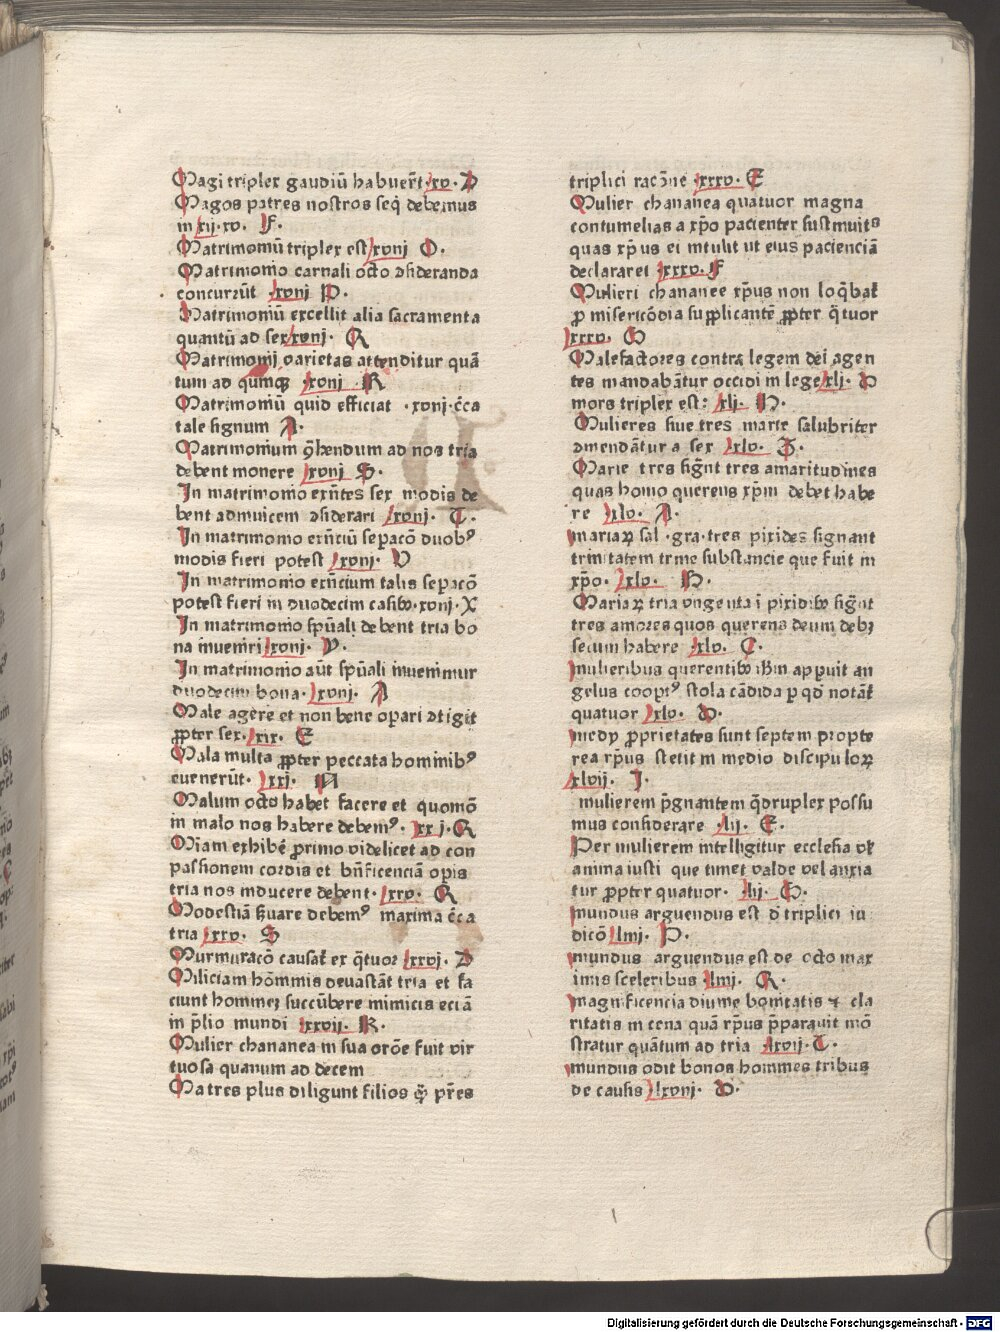 Magi triplex gaudiū habuer̄t ·xv· D
Magos patres nostros seq̄ debemus
in xij·xv· F·
Matrimoniū triplex est xvnj O·
Matrimonio carnali octo ɔsideranda
concurrūt ·xvnj P·
Matrimoniū excellit alia sacramenta
quantū ad sex xvnj· Q
Matrimonij varietas attenditur quā
tum ad qumqꝫ ·xvnj R
Matrimoniū quid efficiat ·xvnj·c̄ca
tale signum A·
Matrimonium ꝯhendum ad nos tria
debent monere xvnj S·
In matrimonio exn̄tes sex modis de
bent admuicem ɔsiderari xvnj· T·
In matrimonio exn̄ciū sepacō duobꝰ
modis fieri potest xvnj· V
In matrimonio exn̄cium talis sepacō
potest fieri in duodecim casibꝰ·xvnj·X
In matrimonio sp̄uali debent tria bo
na inueniri xvnj· Y·
In matrimonio aūt sp̄uali inuenimur
duodecim bona· xvnj· A
Male agere et non bene oꝑari ɔtigit
ꝓpter sex· xix· E
Mala multa ꝓpter peccata hominibꝰ
euenerūt· xxj· N
Malum octo habet facere et quomō
in malo nos habere debemꝰ· xxj·Q
Miam exhibē primo videlicet ad con
passionem cordis et bn̄ficenciā oꝑis
tria nos mducere debent· xxv· Q
Modestiā ẜuare debemꝰ maxima c̄ca
tria xxv· S
Murmuracō causat̄ ex q̄tuor xxvj· D
Miliciam hōmmis deuastāt tria et fa
ciunt hommeȝ succūbere mimicis eciā
in p̄lio mundi xxvij· K·
Mulier chananea in sua orōe fuit vir
tuosa quanum ad decem
Matres plus diligunt filios q̄ꝫ pr̄es
triplici racōne ·xxxv· E
Mulier chananea quatuor magna
contumelias a xp̄o pacienter sustmuit
quas xp̄us ei mtulit ut eius pacienciā
declararet xxxv· F
Mulieri chananee xp̄us non loq̄bat̄
ꝓ misericōdia supplicantē ꝓpter q̄tuor
xxxv· G
Malefactores contra legem dei agen
tes mandabātur occidi in lege xlj· D
mors triplex est: xlj· H·
Mulieres siue tres marie salubriter
amendātur a sex xlv· Z·
Marie tres sign̄t tres amaritudines
quas homo querens xp̄m debet habe
re xlv· A·
mariaꝝ sal·gra·tres pixides signant
trinitatem trme substancie que fuit in
xp̄o· xlv· B·
Mariaꝝ tria vngenta ī pixidibꝰ sign̄t
tres amores quos querens deum debꝫ
secum habere xlv· C·
mulieribus querentibꝰ ihm apꝑuit an
gelus cooꝑtꝰ stola cādida ꝑ qd̄ notāt̄
quatuor xlv· D·
medy ꝓprietates sunt septem propte
rea xp̄us stetit in medio discipuloꝝ
xlvij· I·
mulierem p̄gnantem q̄druplex possu
mus considerare lij· E·
Per mulierem intelligitur ecclesia vl̄
anima iusti que timet valde vel anxia
tur ꝓpter quatuor· lij· G·
mundus arguendus est d̄ triplici iu
dicō lmj· P·
mundus arguendus est de octo max
imis sceleribus lmj· R·
magnificencia diuine bonitatis ⁊ cla
ritatis in cena quā xp̄us p̄parauit mō
stratur quātum ad tria lxvij·T·
mundus odit bonos hommes tribus
de causis lxvnj· D·
Digitalisierung gefördert durch die Deutsche Forschungsgemeinschaft - DFG